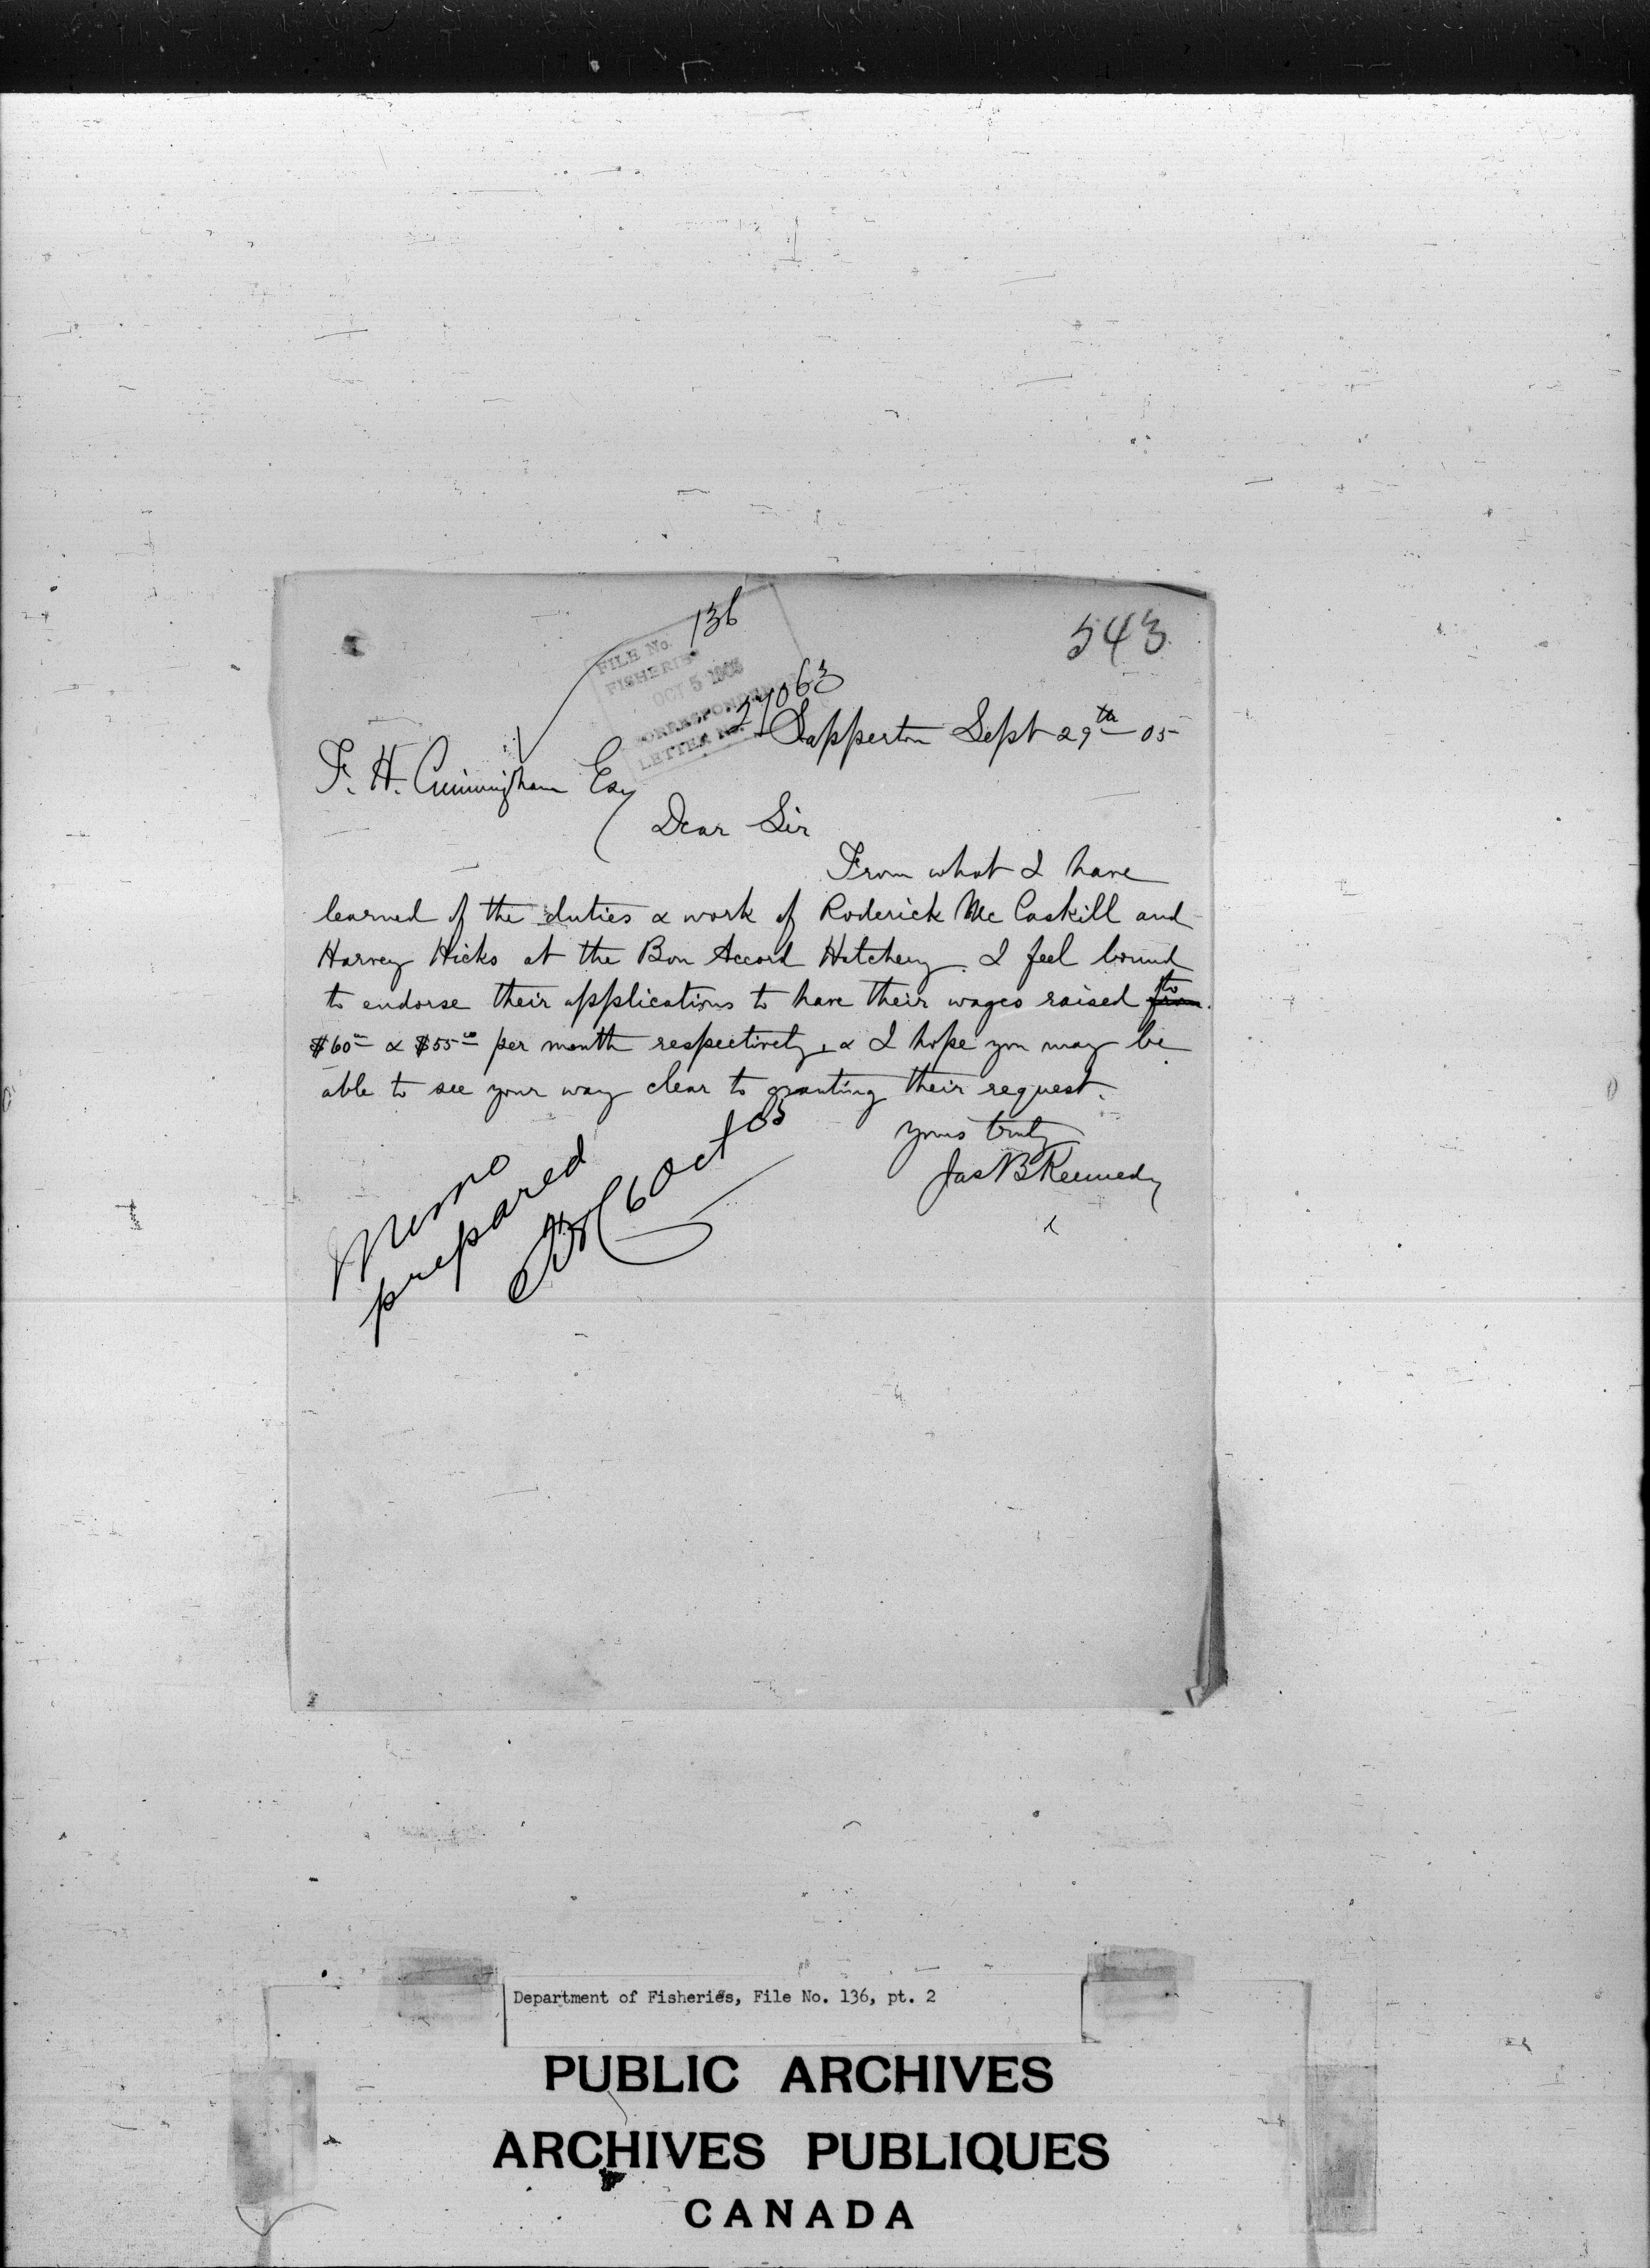 136
543
FILE No.
FISHERIES
OCT 5 1905
27063
CORRESPONDENCE
LETTER No.
Sapperton Sept 29th - 05
F. H. Cunningham Esq
Dear Sir
From what I have
learned of the duties & work of Roderick McCaskill and
Harvey Hicks at the Bon Accord Hatchery. I feel bound
to endorse their applications to have their wages raised from to
$60 00 & $55 00 per month respectively, & I hope you may be
able to see your way clear to granting their request.
Yours truly
Jas B Kennedy
Memo
prepared
6 Oct / 05
Department of Fisheries, File No. 136, pt. 2
PUBLIC ARCHIVES
ARCHIVES PUBLIQUES
CANADA